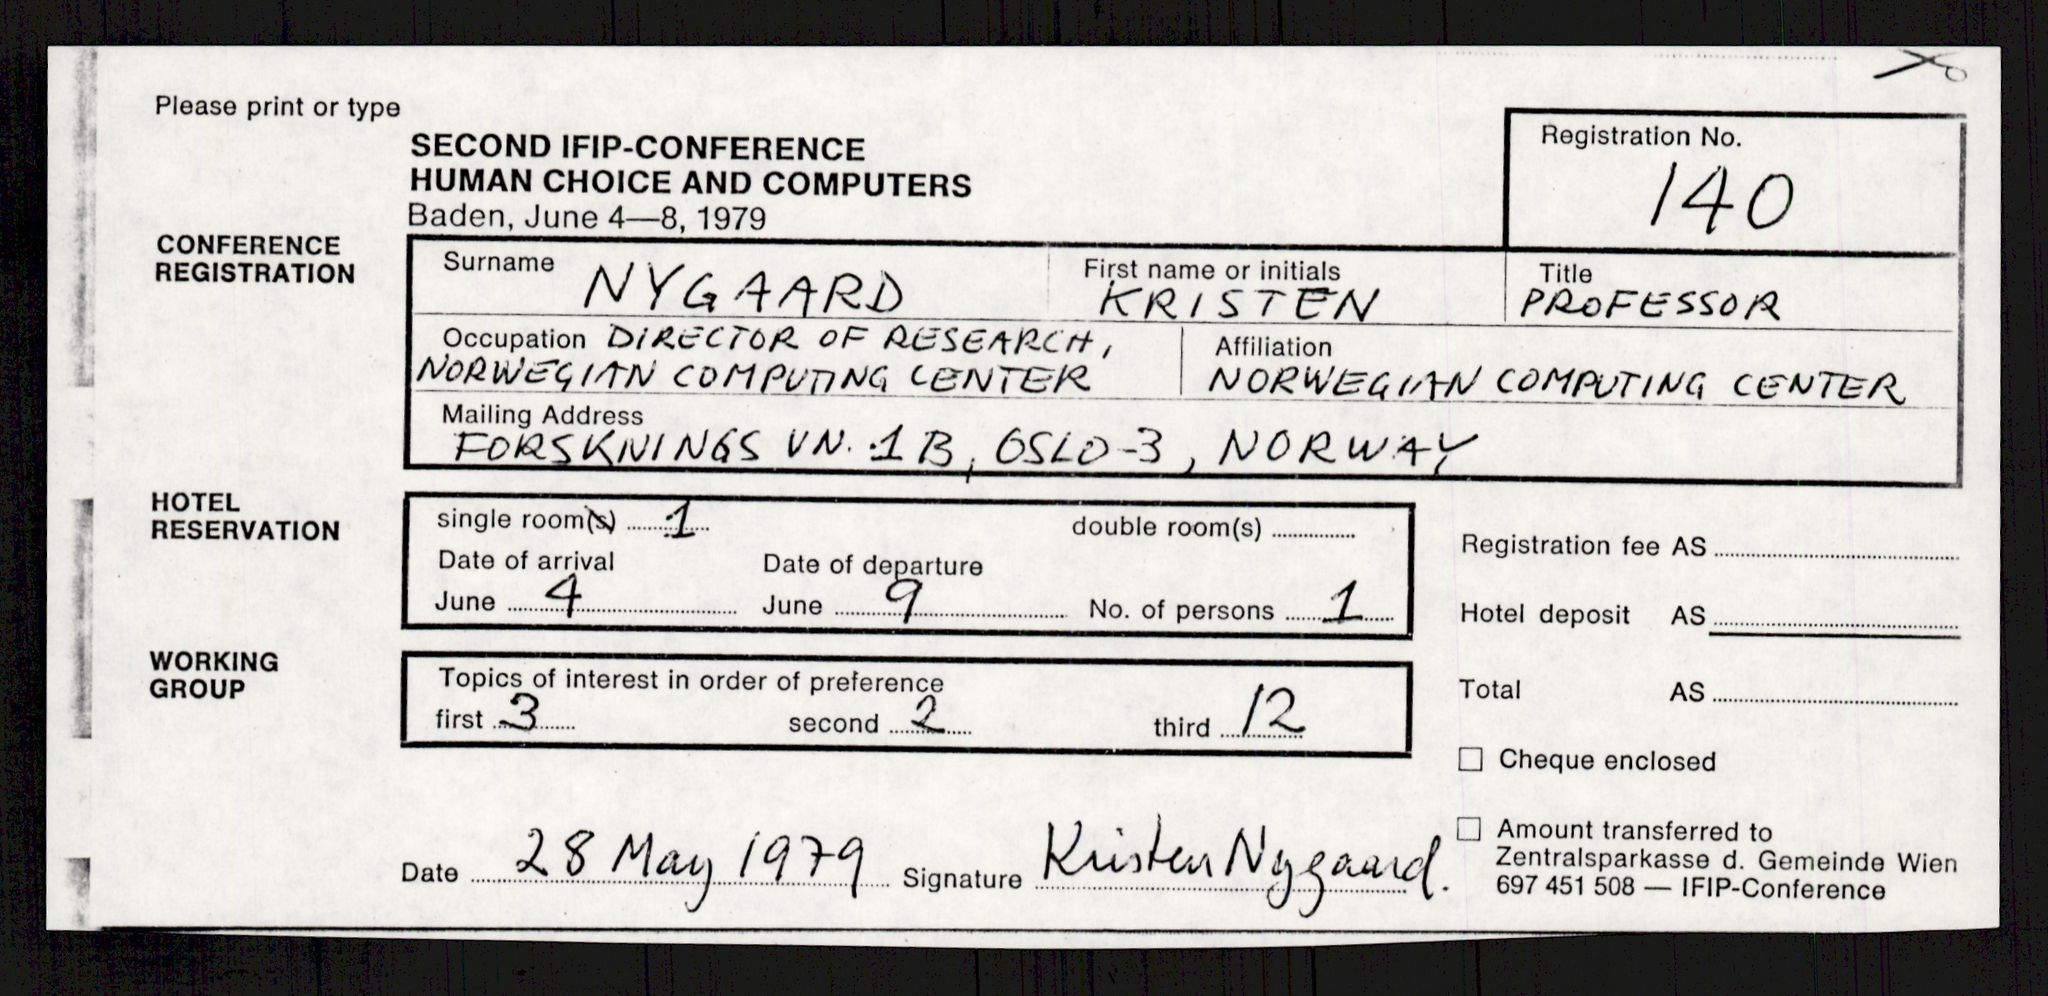 Please print or type
SECOND IFIP-CONFERENCE
HUMAN CHOICE AND COMPUTERS
Baden, June 4—8, 1979
Registration No.
140
CONFERENCE
REGISTRATION
Surname NYGAARD
First name or initials
KRISTEN
Title
PROFESSOR
Occupation DIRECTOR OF RESEARCH,
NORWEGIAN COMPUTING CENTER
Affiliation
NORWEGIAN COMPUTING CENTER
Mailing Address
FORSKNINGS VN. 1B, OSLO-3, NORWAY
HOTEL
RESERVATION
single room(s) 1 double room(s)
Date of arrival Date of departure
June 4 June 9 No. of persons 1
Registration fee AS
Hotel deposit AS
Total AS
WORKING
GROUP
Topics of interest in order of preference
first 3 second 2 third 12
Cheque enclosed
Amount transferred to
Zentralsparkasse d. Gemeinde Wien
697 451 508 — IFIP-Conference
Date 28 May 1979 Signature Kristen Nygaard.